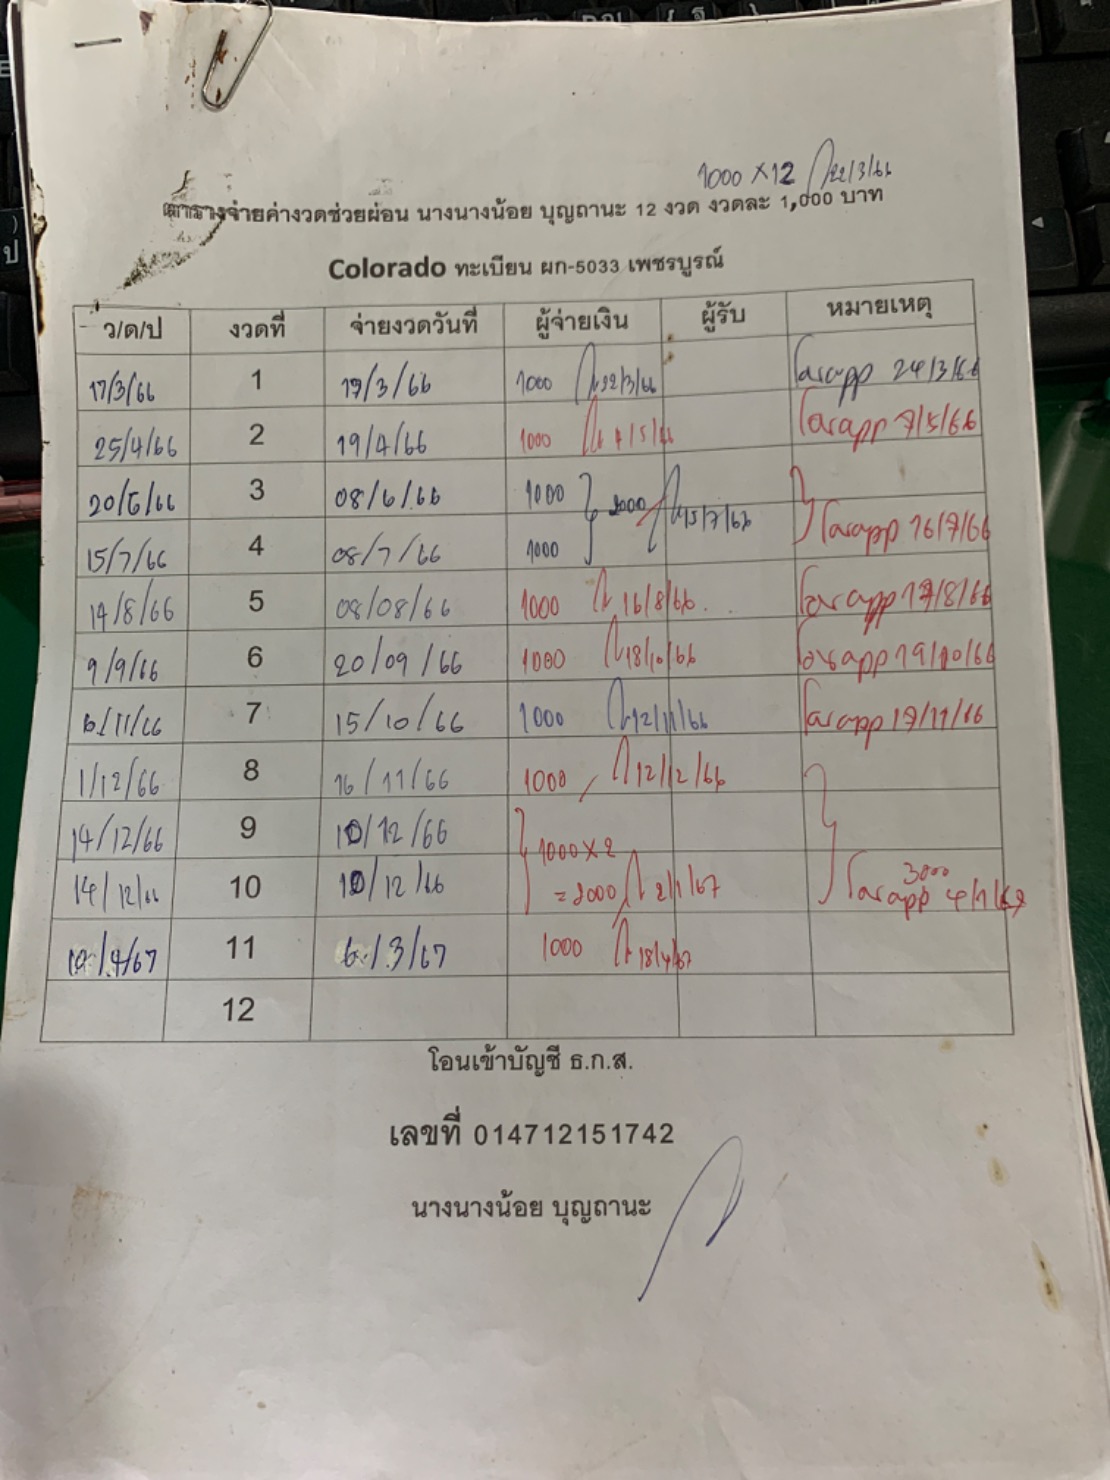 1000 X12 22/3/66
ตารางจ่ายค่างวดช่วยผ่อน นางนางน้อย บุญถานะ 12 งวด งวดละ 1,000 บาท
Colorado ทะเบียน ผก-5033 เพชรบูรณ์
ว/ด/ป งวดที่ จ่ายงวดวันที่ ผู้จ่ายเงิน ผู้รับ หมายเหตุ
17/3/66 1 19/3/66 1000 22/3/66 โอนapp 24/3/66
25/4/66 2 19/4/66 1000 โอนapp 7/5/66
20/6/66 3 08/6/66 1000 2000 15/7/66
15/7/66 4 08/7/66 1000 โอนapp 16/7/66
14/8/66 5 08/08/66 1000 16/8/66 โอนapp 17/8/66
9/9/66 6 20/09/66 1000 18/10/66 โอนapp 19/10/66
7 15/10/66 1000 12/11/66 โอนapp 17/11/66
1/12/66 8 16/11/66 1000 12/12/66
14/12/66 9 10/12/66 1000 X 2
14/12/66 10 10/12/66 = 2000 2/1/67 3000 โอนapp
11 6/3/67 1000 18/4/67
12
โอนเข้าบัญชี ธ.ก.ส.
เลขที่ 014712151742
นางนางน้อย บุญถานะ